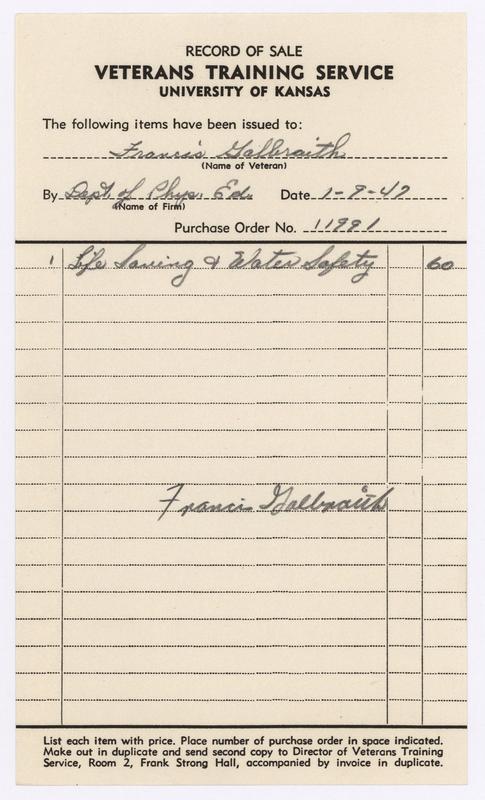 RECORD OF SALE
VETERANS TRAINING SERVICE
UNIVERSITY OF KANSAS
The following items have been issued to:
Francis Galbraith
(Name of Veteran)
By Dept. of Phys. Ed. Date 1-9-47
(Name of Firm)
Purchase Order No. 11991
1 Life Saving & Water Safety 60
Francis Galbraith
List each item with price. Place number of purchase order in space indicated.
Make out in duplicate and send second copy to Director of Veterans Training
Service, Room 2, Frank Strong Hall, accompanied by invoice in duplicate.